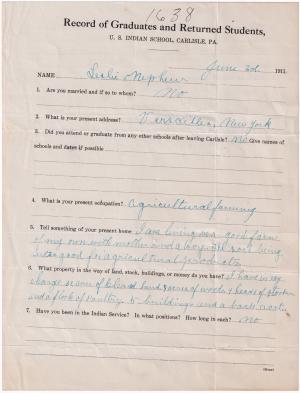 1638
Record of Graduates and Returned Students,
U. S. INDIAN SCHOOL, CARLISLE, PA.
June 3d 1911.
NAME Leslie Nephew
1. Are you married and if so to whom? No
2. What is your present address? Versailles, New York
3. Did you attend or graduate from any other schools after leaving Carlisle? No Give names of
schools and dates if possible
4. What is your present occupation? Agricultural farming
5. Tell something of your present home I am living on a good farm
of my own with mother and a boy
good for agricultural
6. What property in the way of land, stock, buildings, or money do you have? I have in my
charge acres of cleared land acres of woods heads of stock
and a flock of poultry buildings and a bank
7. Have you been in the Indian Service? In what positions? How long in each? No
(Over)